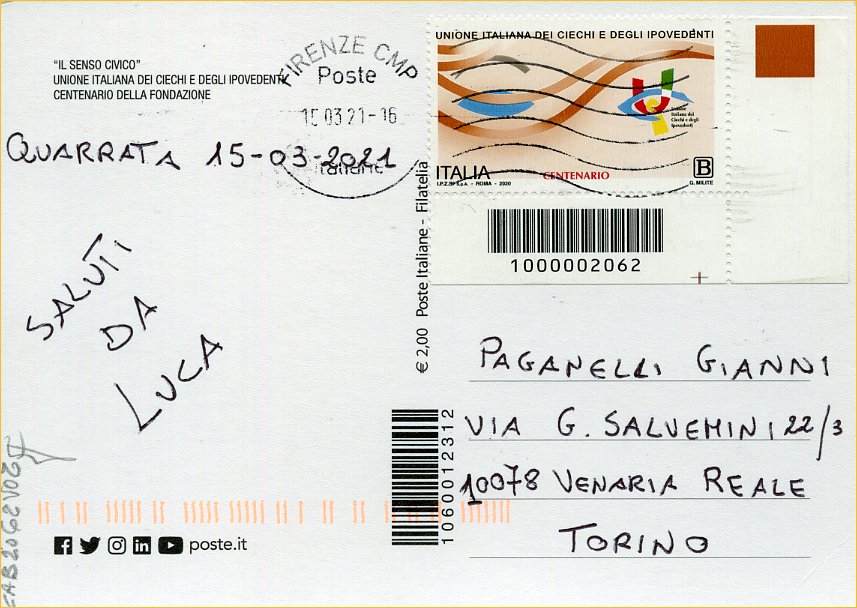 "IL SENSO CIVICO"
UNIONE ITALIANA DEI CIECHI E DEGLI IPOVEDENTI
CENTENARIO DELLA FONDAZIONE
FIRENZE CMP
Poste
15 03 21-16
Italiane
UNIONE ITALIANA DEI CIECHI E DEGLI IPOVEDENTI
Unione
Italiana dei
Ciechi e degli
Ipovedenti
ITALIA
CENTENARIO
B
I.P.Z.S. S.p.A. - ROMA - 2020
G. MILITE
1000002062
QUARRATA 15-03-2021
SALUTI
DA
LUCA
€ 2,00 Poste Italiane - Filatelia
PAGANELLI GIANNI
VIA G. SALVEMINI 22/3
10078 VENARIA REALE
TORINO
1060012312
poste.it